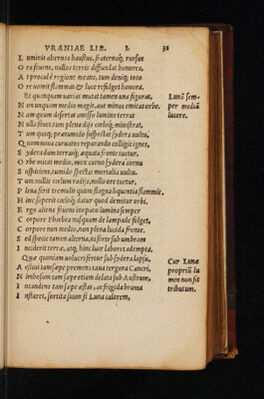 VRANIAE LIB. I. 38
Luminis alternos haustus, fraternaq; rursus
Ora fluens, nullos terris diffundat honores,
At procul è regione means, tum deniq; toto
Ore vomit flammas, & luce resplget honora.
Et quanquam varias mutat tamen una figuras,
Non unquam medio magis, aut minus emicat orbe.
Nam quum desertat amisso lumine terras
Nulli fruens tum plena
Tum quoq; præcumido suspectas sydera vultu,
Quum nova curvatos reparando colligit ignes,
Sydera dum terræ; æquata fronte tuetur.
Orbe micat medio, mox curvo sydera cornu
Suspiciens, tumido spectat mortalia vultu.
Tum nullos cælum radijs, nullo ore tuetur,
Plena ferit tremulis quum stagna liquentia flammis,
Hinc superis cæloq; datur quod demitur orbi.
Ergo aliena fluens in opaco lumina semper
Corpore Phœbea nusquam de lampade fulget,
Corpore non medio, non plena lucida fronte.
Sed specie tamen aliena, ns ferre sub umbram
Inciderit terræ, atq; hinc luce labores adempta.
Quæ quoniam volucris fertur sub sydera lapsu,
Aestivi tam sæpe premens tua tergora Cancri,
Nimbosi tam sæpe etiam delata sub Austrum,
Incandens tam sæpe æstas, ac frigida bruma
Instaret, sortita suum si Luna calorem,
Lunã sem-
per mediã
lucere.
Cur Lunæ
propriũ lu
men non sit
tributum.